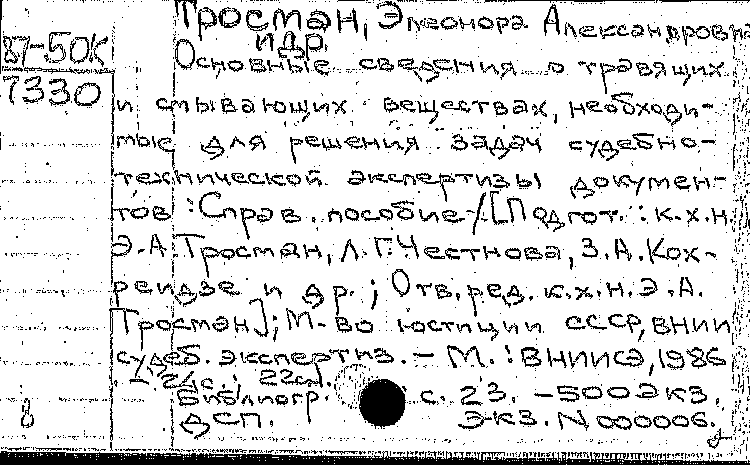 Тросман, Элеонора Александровна
и др.
87-50К
7330
Основные сведения о травящих
и смывающих веществах, необходи-
мые для решения задач судебно-
технической экспертизы докумен-
тов : Справ. пособие / [Подгот. : к.х.н.
Э.А. Тросман, Л.Г. Честнова, З.А. Кох-
реидзе и др. ; Отв. ред. к.х.н. Э.А.
Тросман]; М-во юстиции СССР, ВНИИ
судеб. экспертиз. - М. : ВНИИСЭ, 1986
. - 24 с. ; 22 см.
Библиогр. с. 23. - 500 экз.
ДСП. Экз. N 000006.
8